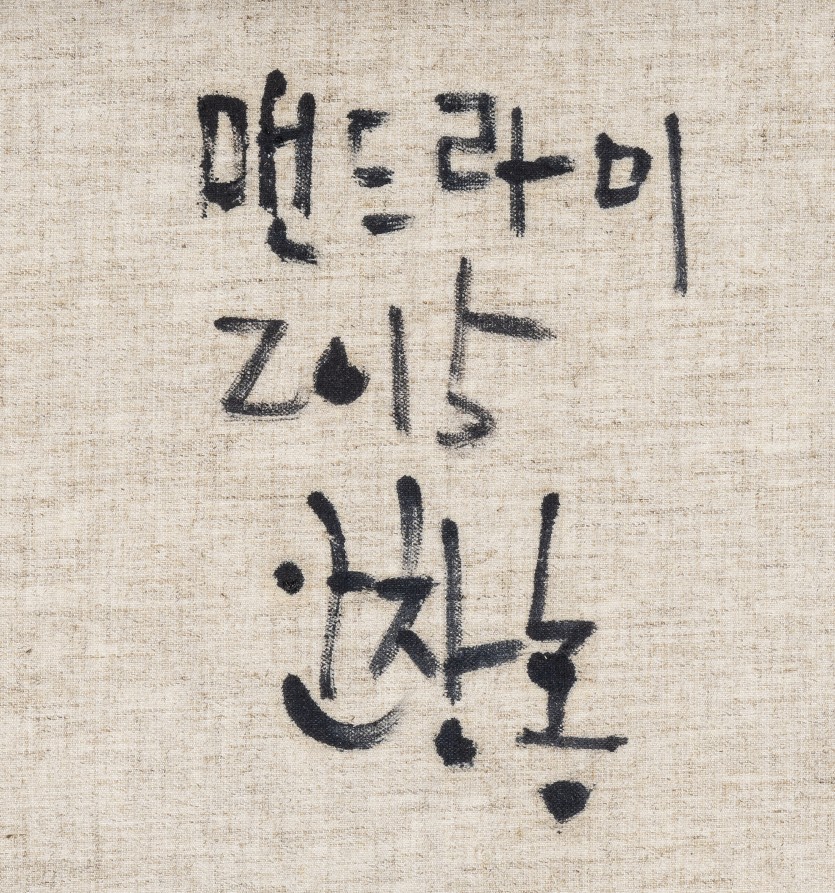 맨드라미
2015
안창홍